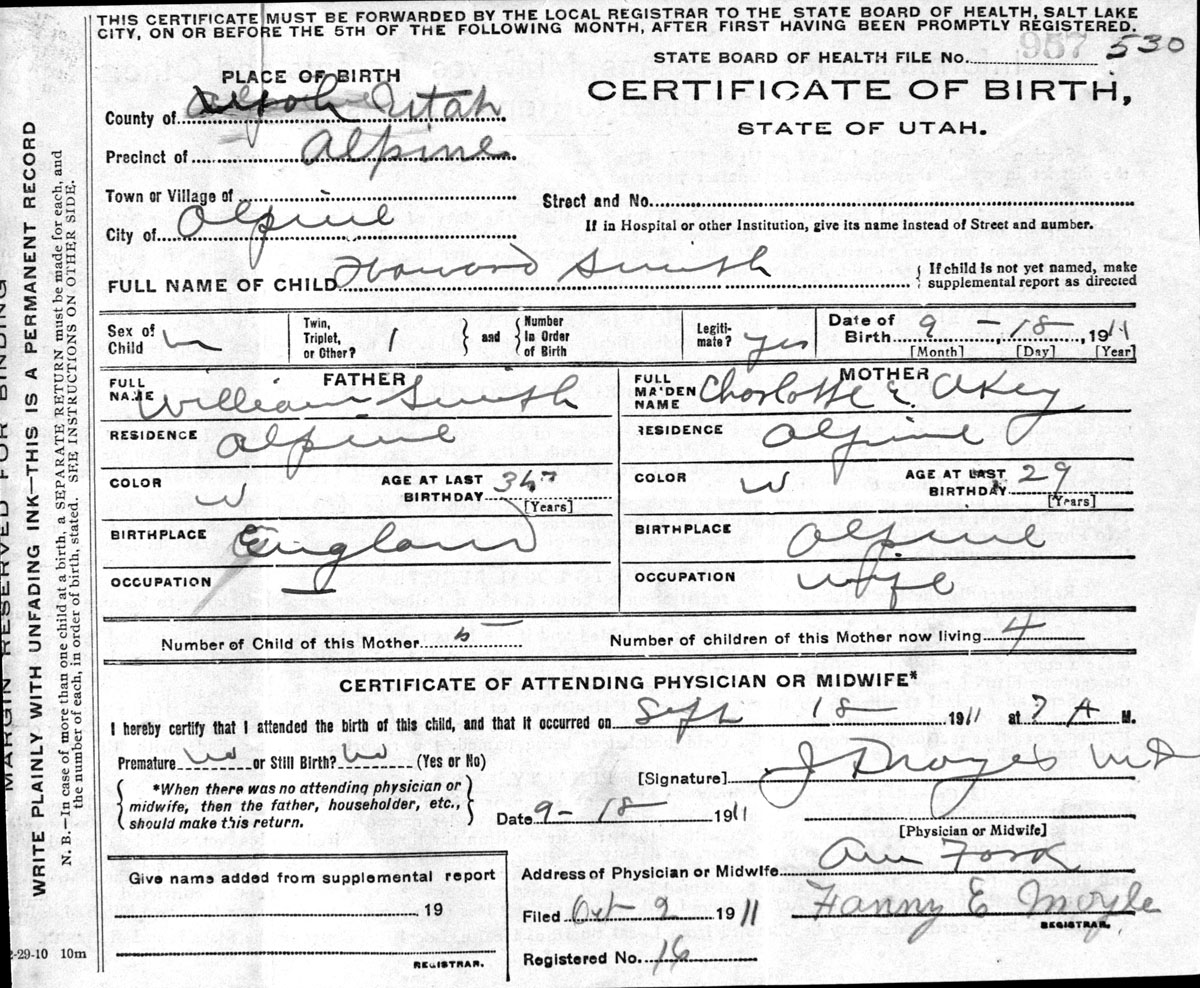 THIS CERTIFICATE MUST BE FORWARDED BY THE LOCAL REGISTRAR TO THE STATE BOARD OF HEALTH, SALT LAKE
CITY, ON OR BEFORE THE 5TH OF THE FOLLOWING MONTH, AFTER FIRST HAVING BEEN PROMPTLY REGISTERED.
957 530
STATE BOARD OF HEALTH FILE No.
PLACE OF BIRTH
CERTIFICATE OF BIRTH,
STATE OF UTAH.
County of Utah
Precinct of Alpine
Town or Village of
Street and No.
City of Alpine
If in Hospital or other Institution, give its name instead of Street and number.
FULL NAME OF CHILD Howard Smith
{ If child is not yet named, make
supplemental report as directed
Sex of Child m
Twin, Triplet, or Other? 1 } and { Number in Order of Birth
Legiti-mate? yes
Date of Birth 9 - 18, 1911
[Month] [Day] [Year]
FATHER
FULL NAME William Smith
MOTHER
FULL MAIDEN NAME Charlotte E. Akey
RESIDENCE Alpine
RESIDENCE Alpine
COLOR W
AGE AT LAST BIRTHDAY 34 [Years]
COLOR W
AGE AT LAST BIRTHDAY 29 [Years]
BIRTHPLACE England
BIRTHPLACE Alpine
OCCUPATION —
OCCUPATION wife
Number of Child of this Mother 5
Number of children of this Mother now living 4
CERTIFICATE OF ATTENDING PHYSICIAN OR MIDWIFE*
I hereby certify that I attended the birth of this child, and that it occurred on Sept 18 1911 at 7 A M.
Premature No or Still Birth? No (Yes or No)
[Signature] J F Noyes M D
{ *When there was no attending physician or
midwife, then the father, householder, etc.,
should make this return. }
Date 9 - 18 1911
[Physician or Midwife]
Give name added from supplemental report
19
REGISTRAR.
Address of Physician or Midwife Am Fork
Filed Oct 9 1911 Fanny E Moyle
REGISTRAR.
Registered No. 16
2-29-10 10m
MARGIN RESERVED FOR BINDING
WRITE PLAINLY WITH UNFADING INK—THIS IS A PERMANENT RECORD
N. B.—In case of more than one child at a birth, a SEPARATE RETURN must be made for each, and
the number of each, in order of birth, stated. SEE INSTRUCTIONS ON OTHER SIDE.